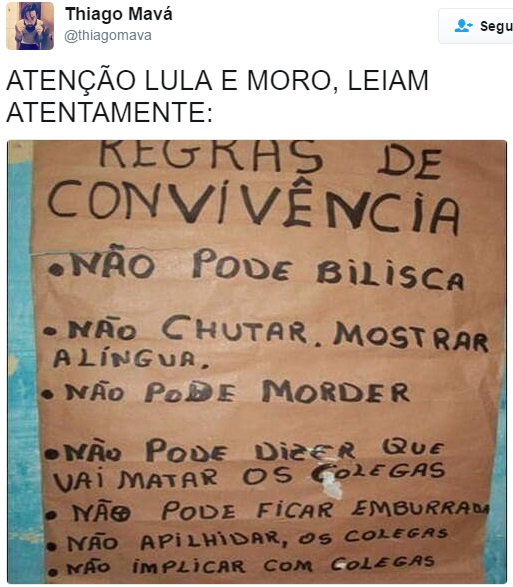 Thiago Mavá
@thiagomava
Segu
ATENÇÃO LULA E MORO, LEIAM
ATENTAMENTE:
REGRAS DE
CONVIVÊNCIA
•NÃO PODE BILISCA
•NÃO CHUTAR. MOSTRAR
A LÍNGUA.
•NÃO PODE MORDER
•NÃO PODE DIZER QUE
VAI MATAR OS COLEGAS
•NÃO PODE FICAR EMBURRADA
•NÃO APILHIDAR, OS COLEGAS
•NÃO IMPLICAR COM COLEGAS